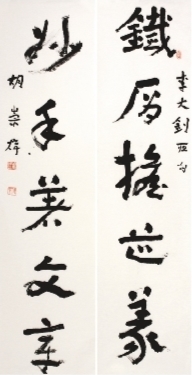 鐵肩擔道義
李大釗
妙手著文章
胡崇煒